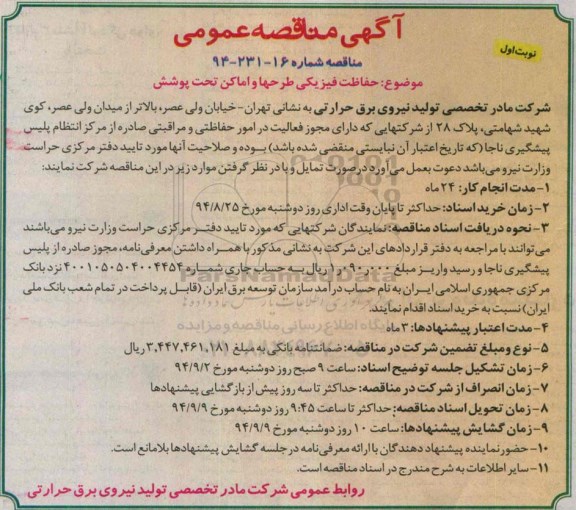 آگهی مناقصه عمومی
نوبت اول
مناقصه شماره ۱۶-۲۳۱-۹۴
موضوع: حفاظت فیزیکی طرحها و اماکن تحت پوشش
شرکت مادر تخصصی تولید نیروی برق حرارتی به نشانی تهران-خیابان ولی عصر، بالاتر از میدان ولی عصر، کوی
شهید شهامتی، پلاک ۲۸ از شرکتهایی که دارای مجوز فعالیت در امور حفاظتی و مراقبتی صادره از مرکز انتظام پلیس
پیشگیری ناجا (که تاریخ اعتبار آن نبایستی منقضی شده باشد) بوده و صلاحیت آنها مورد تایید دفتر مرکزی حراست
وزارت نیرو می‌باشد دعوت بعمل می‌آورد درصورت تمایل و با در نظر گرفتن موارد زیر در این مناقصه شرکت نمایند:
۱-مدت انجام کار: ۲۴ماه
۲-زمان خرید اسناد: حداکثر تا پایان وقت اداری روز دوشنبه مورخ ۹۴/۸/۲۵
۳- نحوه دریافت اسناد مناقصه: نمایندگان شرکتهایی که مورد تایید دفتر مرکزی حراست وزارت نیرو می‌باشند
می‌توانند با مراجعه به دفتر قراردادهای این شرکت به نشانی مذکور با همراه داشتن معرفی‌نامه، مجوز صادره از پلیس
پیشگیری ناجا و رسید واریز مبلغ ریال به حساب جاری شماره نزد بانک
مرکزی جمهوری اسلامی ایران به نام حساب درآمد سازمان توسعه برق ایران (قابل پرداخت در تمام شعب بانک ملی
ایران) نسبت به خرید اسناد اقدام نمایند.
۴-مدت اعتبار پیشنهادها: ۳ماه
۵-نوع و مبلغ تضمین شرکت در مناقصه: ضمانتنامه بانکی به مبلغ ۳,۴۴۷,۴۶۱,۱۸۱ ریال
۶-زمان تشکیل جلسه توضیح اسناد: ساعت ۹ صبح روز دوشنبه مورخ ۹۴/۹/۲
۷-زمان انصراف از شرکت در مناقصه: حداکثر تا سه روز پیش از بازگشایی پیشنهادها
۸-زمان تحویل اسناد مناقصه: حداکثر تا ساعت ۹:۴۵ روز دوشنبه مورخ ۹۴/۹/۹
۹-زمان گشایش پیشنهادها: ساعت ۱۰ روز دوشنبه مورخ ۹۴/۹/۹
۱۰-حضور نماینده پیشنهاد دهندگان با ارائه معرفی‌نامه در جلسه گشایش پیشنهادها بلامانع است.
۱۱-سایر اطلاعات به شرح مندرج در اسناد مناقصه است.
روابط عمومی شرکت مادر تخصصی تولید نیروی برق حرارتی